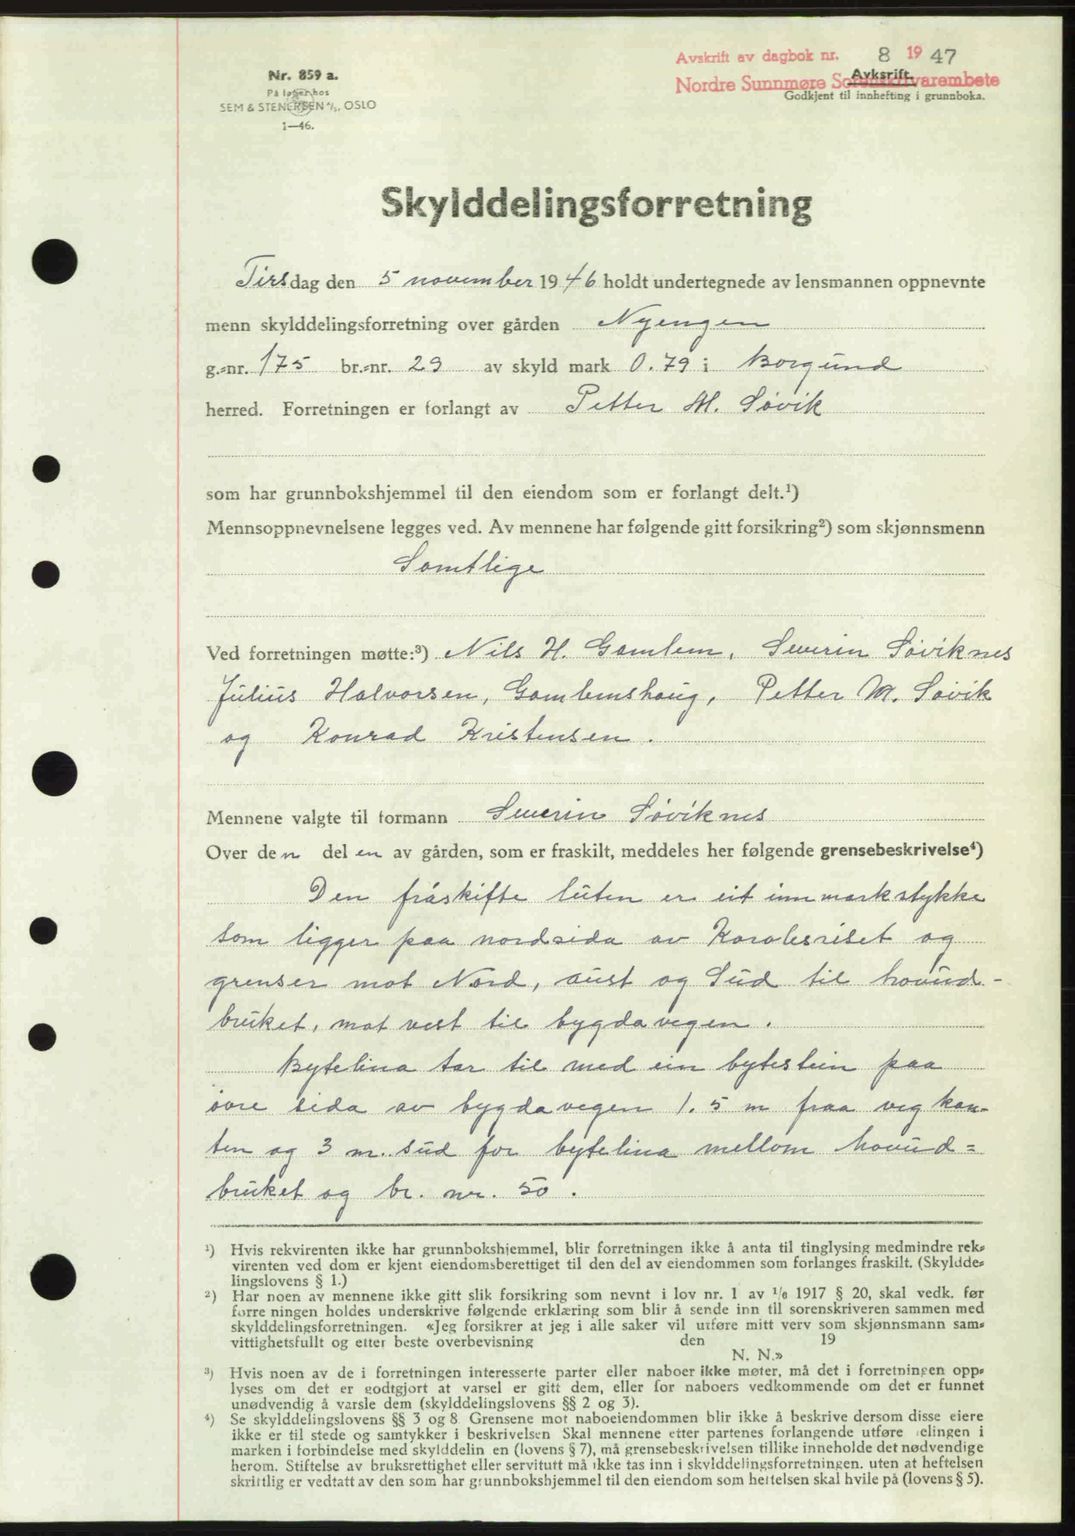 Avskrift av dagbok nr. 8 1947
Nordre Sunnmøre Sorenskrivarembete
Avksrift.
Godkjent til innhefting i grunnboka.
Nr. 859 a.
På lager hos
SEM & STENERSEN A/S, OSLO
1—46.
Skylddelingsforretning
Tirsdag den 5 november 1946 holdt undertegnede av lensmannen oppnevnte
menn skylddelingsforretning over gården Nyengen
g.-nr. 175 br.-nr. 29 av skyld mark 0.79 i Borgund
herred. Forretningen er forlangt av Petter M. Søvik
som har grunnbokshjemmel til den eiendom som er forlangt delt.¹)
Mennsoppnevnelsene legges ved. Av mennene har følgende gitt forsikring²) som skjønnsmenn
Samtlige
Ved forretningen møtte:³) Nils H. Gamlem, Severin Søviknes
Julius Halvorsen, Gamlemshaug, Petter M. Søvik
og Konrad Kristensen.
Mennene valgte til formann Severin Søviknes
Over den del en av gården, som er fraskilt, meddeles her følgende grensebeskrivelse⁴)
Den fráskifte luten er eit innmarkstykke
som ligger paa nordsida av og
grenser mot Nord, aust og Sud til hovud-
bruket, mot vest til bygdavegen.
Bytelina tar til med ein bytestein paa
øvre sida av bygdavegen 1.5 m fraa vegkan-
ten og 3 m. sud for bytelina mellom hovud=
bruket og br. nr. 50.
¹) Hvis rekvirenten ikke har grunnbokshjemmel, blir forretningen ikke å anta til tinglysing medmindre rek-
virenten ved dom er kjent eiendomsberettiget til den del av eiendommen som forlanges fraskilt. (Skyldde-
lingslovens § 1.)
²) Har noen av mennene ikke gitt slik forsikring som nevnt i lov nr. 1 av 1/6 1917 § 20, skal vedk. før
forre ningen holdes underskrive følgende erklæring som blir å sende inn til sorenskriveren sammen med
skylddelingsforretningen. «Jeg forsikrer at jeg i alle saker vil utføre mitt verv som skjønnsmann sam-
vittighetsfullt og etter beste overbevisning den 19
N. N.»
³) Hvis noen av de i forretningen interesserte parter eller naboer ikke møter, må det i forretningen opp-
lyses om det er godtgjort at varsel er gitt dem, eller for naboers vedkommende om det er funnet
unødvendig å varsle dem (skylddelingslovens §§ 2 og 3).
⁴) Se skylddelingslovens §§ 3 og 8 Grensene mot naboeiendommen blir ikke å beskrive dersom disse eiere
ikke er til stede og samtykker i beskrivelsen Skal mennene etter partenes forlangende utføre delingen i
marken i forbindelse med skylddelin en (lovens § 7), må grensebeskrivelsen tillike inneholde det nødvendige
herom. Stiftelse av bruksrettighet eller servitutt må ikke tas inn i skylddelingsforretningen, uten at heftelsen
skriftlig er vedtatt av den som har grunnbokshjemmel til den eiendom som heftelsen skal hvile på (lovens § 5).